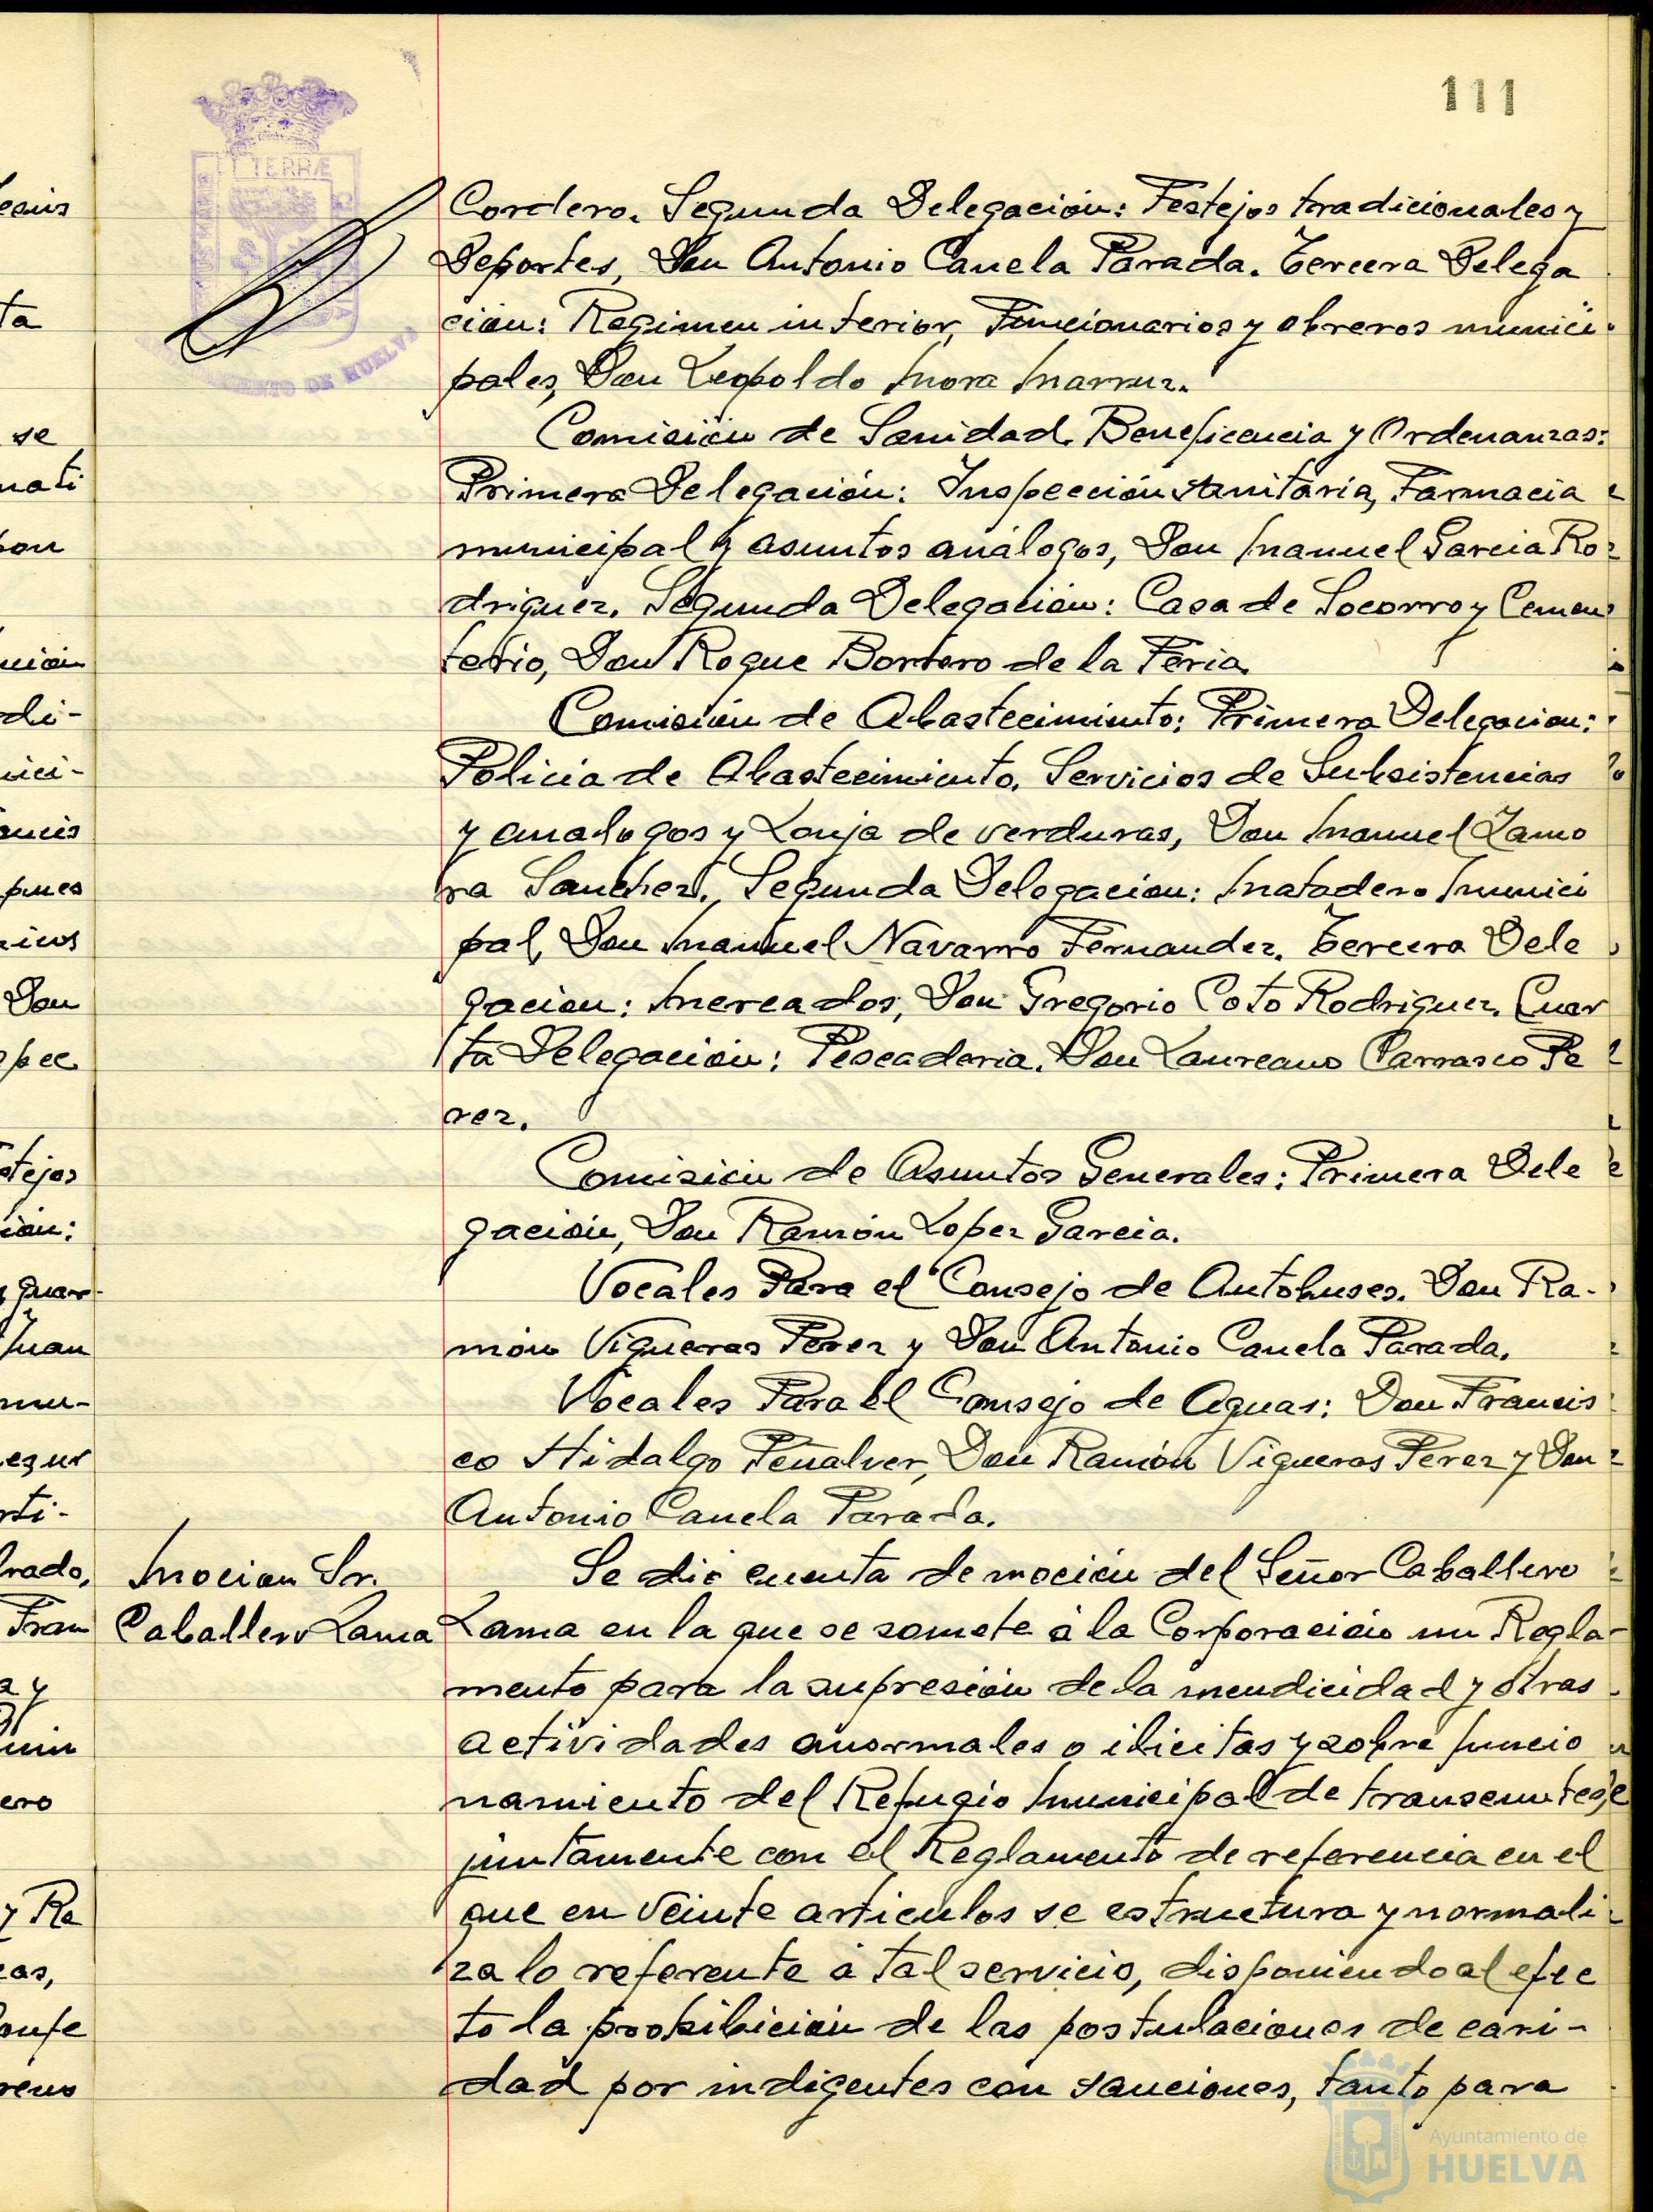 111
TERRÆ
AYUNTAMIENTO DE HUELVA
Cordero. Segunda Delegación: Festejos tradicionales y
Deportes, Don Antonio Canela Parada. Tercera Delega
ción: Regimen interior, Funcionarios y obreros munici-
pales, Don Leopoldo Mora
Comisión de Sanidad, Beneficencia y Ordenanzas:
Primera Delegación: Inspección sanitaria, Farmacia
municipal y asuntos análogos, Don Manuel Garcia Ro-
driguez. Segunda Delegación: Casa de Socorro y Cemen
terio, Don Roque Bortero de la Feria.
Comisión de Abastecimiento: Primera Delegacion:
Policia de Abastecimiento. Servicios de Subsistencias
y analogos y Lonja de verduras, Don Manuel Zamo
ra Sanchez., Segunda Delegacion: Matadero Munici
pal, Don Manuel Navarro Fernandez. Tercera Dele
gacion: Mercados, Don Gregorio Coto Rodriguez. Cuar
ta Delegación: Pescaderia. Don Laureano Carrasco Pe
rez.
Comisión de Asuntos Generales: Primera Dele
gación, Don Ramón Lopez Garcia.
Vocales Para el Consejo de Autobuses. Don Ra-
món Vigueras Perez y Don Antonio Canela Parada.
Vocales Para el Consejo de Aguas: Don Francis
co Hidalgo Peñalver, Don Ramón Vigueras Perez y Don
Antonio Canela Parada.
Mocion Sr.
Caballero Lama
Se dió cuenta de moción del Señor Caballero
Lama en la que se somete á la Corporación un Regla-
mento para la supresión de la mendicidad y otras
actividades anormales o ilicitas y sobre funcio
namiento del Refugio Municipal de transeuntes,
juntamente con el Reglamento de referencia en el
que en veinte articulos se estructura y normali
za lo referente á tal servicio, disponiendo al efec
to la prohibición de las postulaciones de cari-
dad por indigentes con sanciones, tanto para
Ayuntamiento de
HUELVA